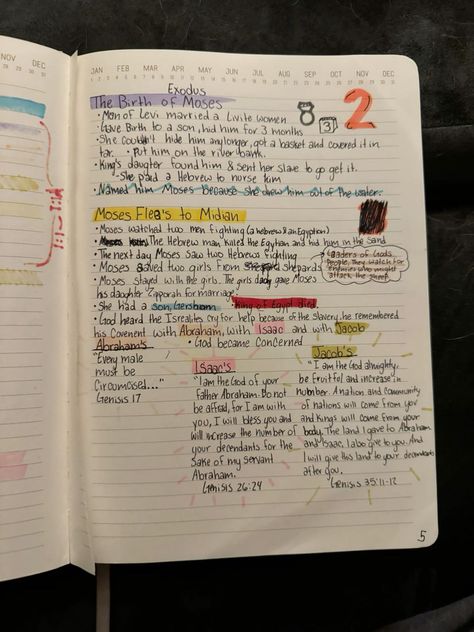 NOV DEC
JAN FEB MAR APR MAY JUN JUL AUG SEP OCT NOV DEC
Exodus
The Birth of Moses
8
3
2
• Man of Levi married a Livite women
• Gave Birth to a son, hid him for 3 months
• She couldn't hide him any longer, got a basket and covered it in
tar. • Put him on the river bank.
• King's daughter found him & sent her slave to go get it.
- She paid a Hebrew to nurse him
• Named him Moses because she drew him out of the water.
Moses Flea's to Midian
• Moses watched two men fighting (a hebrew & an Egyption)
• The Hebrew man killed the Egytian and hid him in the Sand
• The next day Moses saw two Hebrews fighting
• Moses saved two girls from shepards
Leaders of Gods
People. They watch for
enemies who might
attack the sheep.
• Moses stayed with the girls. The girls dady gave Moses
his daughter Zipporah for marriage.
• She had a son, Gershom
• King of Egypt died
• God heard the Isrealites cry for help because of the slavery, he remembered
his Covenent with Abraham, with Isaac and with Jacob
• God became Concerned
Abraham's
"Every male
must be
Circumcised..."
Genisis 17
Isaac's
"I am the God of your
Father Abraham. Do not
be afraid, for I am with
you, I will bless you and
will increase the number of
your decendants for the
Sake of my servant
Abraham.
Genisis 26:24
Jacob's
"I am the God almighty..
be fruitful and increase in
number. A nation and community
of nations will come from yor
and Kings will come from your
body. The land I gave to Abraham
and Isaac, I also give to you. And
I will give this land to your decendants
after you.
Genisis 35:11-12
5